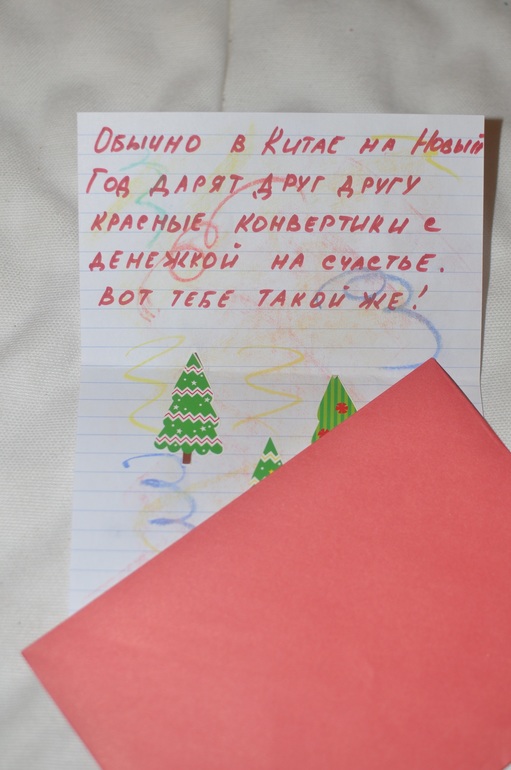 Обычно в Китае на Новый
Год дарят друг другу
красные конвертики с
денежкой на счастье.
Вот тебе такой же!